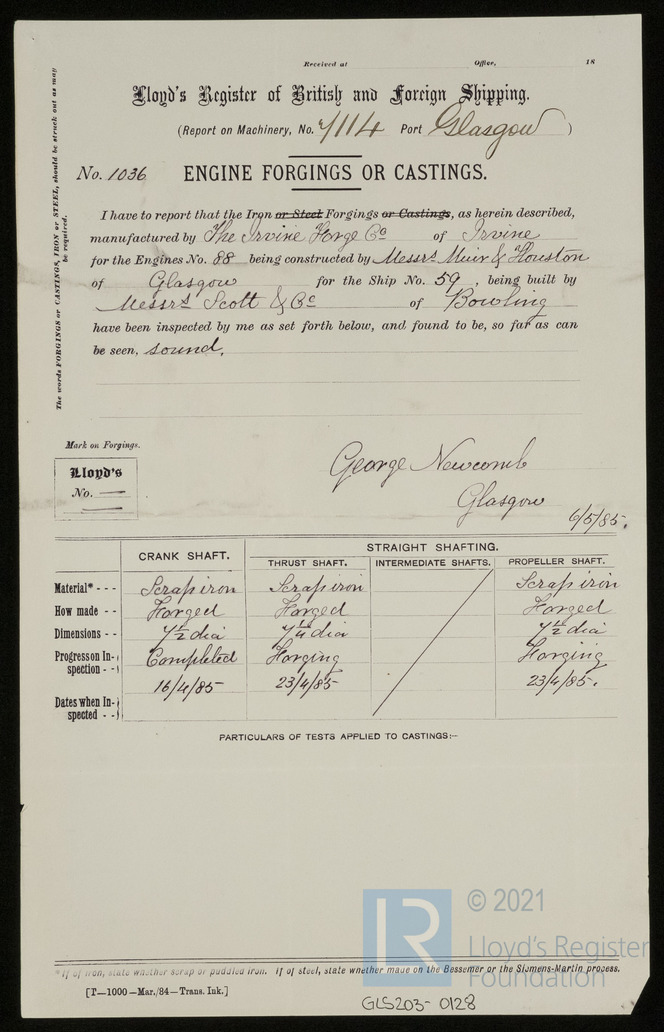 Received at Office, 18
Lloyd's Register of British and Foreign Shipping.
(Report on Machinery, No. 7114 Port Glasgow )
No. 1036 ENGINE FORGINGS OR CASTINGS.
The words FORGINGS or CASTINGS, IRON or STEEL, should be struck out as may
be required.
I have to report that the Iron or Steel Forgings or Castings, as herein described,
manufactured by The Irvine Forge Co of Irvine
for the Engines No. 88 being constructed by Messrs Muir & Houston
of Glasgow for the Ship No. 59, being built by
Messrs Scott & Co of Bowling
have been inspected by me as set forth below, and found to be, so far as can
be seen, sound.
Mark on Forgings.
Lloyd's
No. —
George Newcomb
Glasgow
6/5/85.
CRANK SHAFT. STRAIGHT SHAFTING.
THRUST SHAFT. INTERMEDIATE SHAFTS. PROPELLER SHAFT.
Material* - - - Scrap iron Scrap iron Scrap iron
How made - - Forged Forged Forged
Dimensions - - 7½ dia 7¼ dia 7½ dia
Progress on In- Completed Forging Forging
spection - -
16/4/85 23/4/85 23/4/85.
Dates when In-
spected - -
PARTICULARS OF TESTS APPLIED TO CASTINGS:—
© 2021
LR Lloyd's Register
Foundation
*If of iron, state whether scrap or puddled iron. If of steel, state whether made on the Bessemer or the Siemens-Martin process.
[T—1000—Mar./84—Trans. Ink.]
GLS203-0128